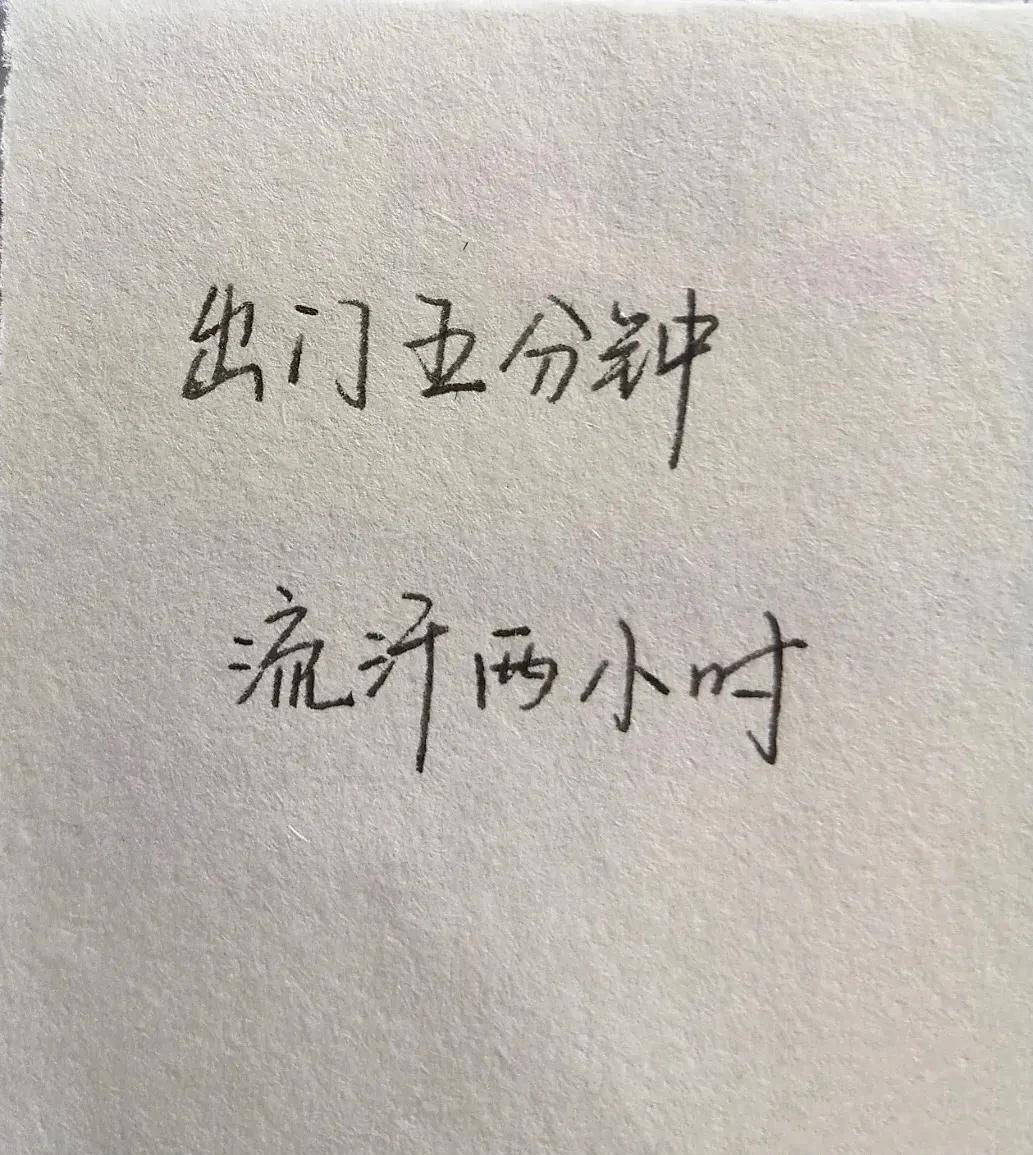 出门五分钟
流汗两小时